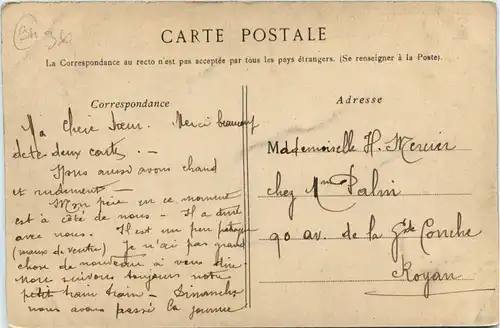 CARTE POSTALE
La Correspondance au recto n'est pas acceptée par tous les pays étrangers. (Se renseigner à la Poste).
Correspondance
Ma Chère Sœur. Merci beaucoup
de tes deux cartes. -
Nous aussi avons chaud
et rudement -
Mon père en ce moment
est à côté de nous - Il a dîné
avec nous. Il est un peu
(maux de ventre) Je n'ai pas grand
chose de nouveau à vous dire
nous suivons toujours notre
petit train train - Dimanche
nous avons passé la journée
Adresse
Mademoiselle H. Mercier
chez Mme Palin
90 av. de la Gde Conche
Royan